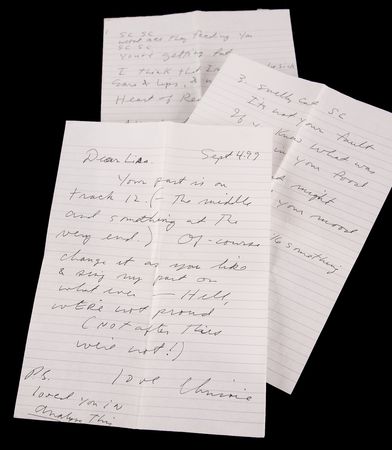 SC SC
what are they feeding you
SC SC
You're getting fat
I think that I'm
Ears & Lips, &
Heart of
3. Smelly Cat SC
It's not your fault
If u know what was
in your food
might
your mood
something
Dear Lisa. Sept 4.99
Your part is on
track 12. (- The middle
and something at the
very end.) Of-course
change it as you like
& sing my part or
what ever - Hell,
we're not proud
(Not after this
we're not!)
love Chrissie
P.S.
loved you in
Analyse This